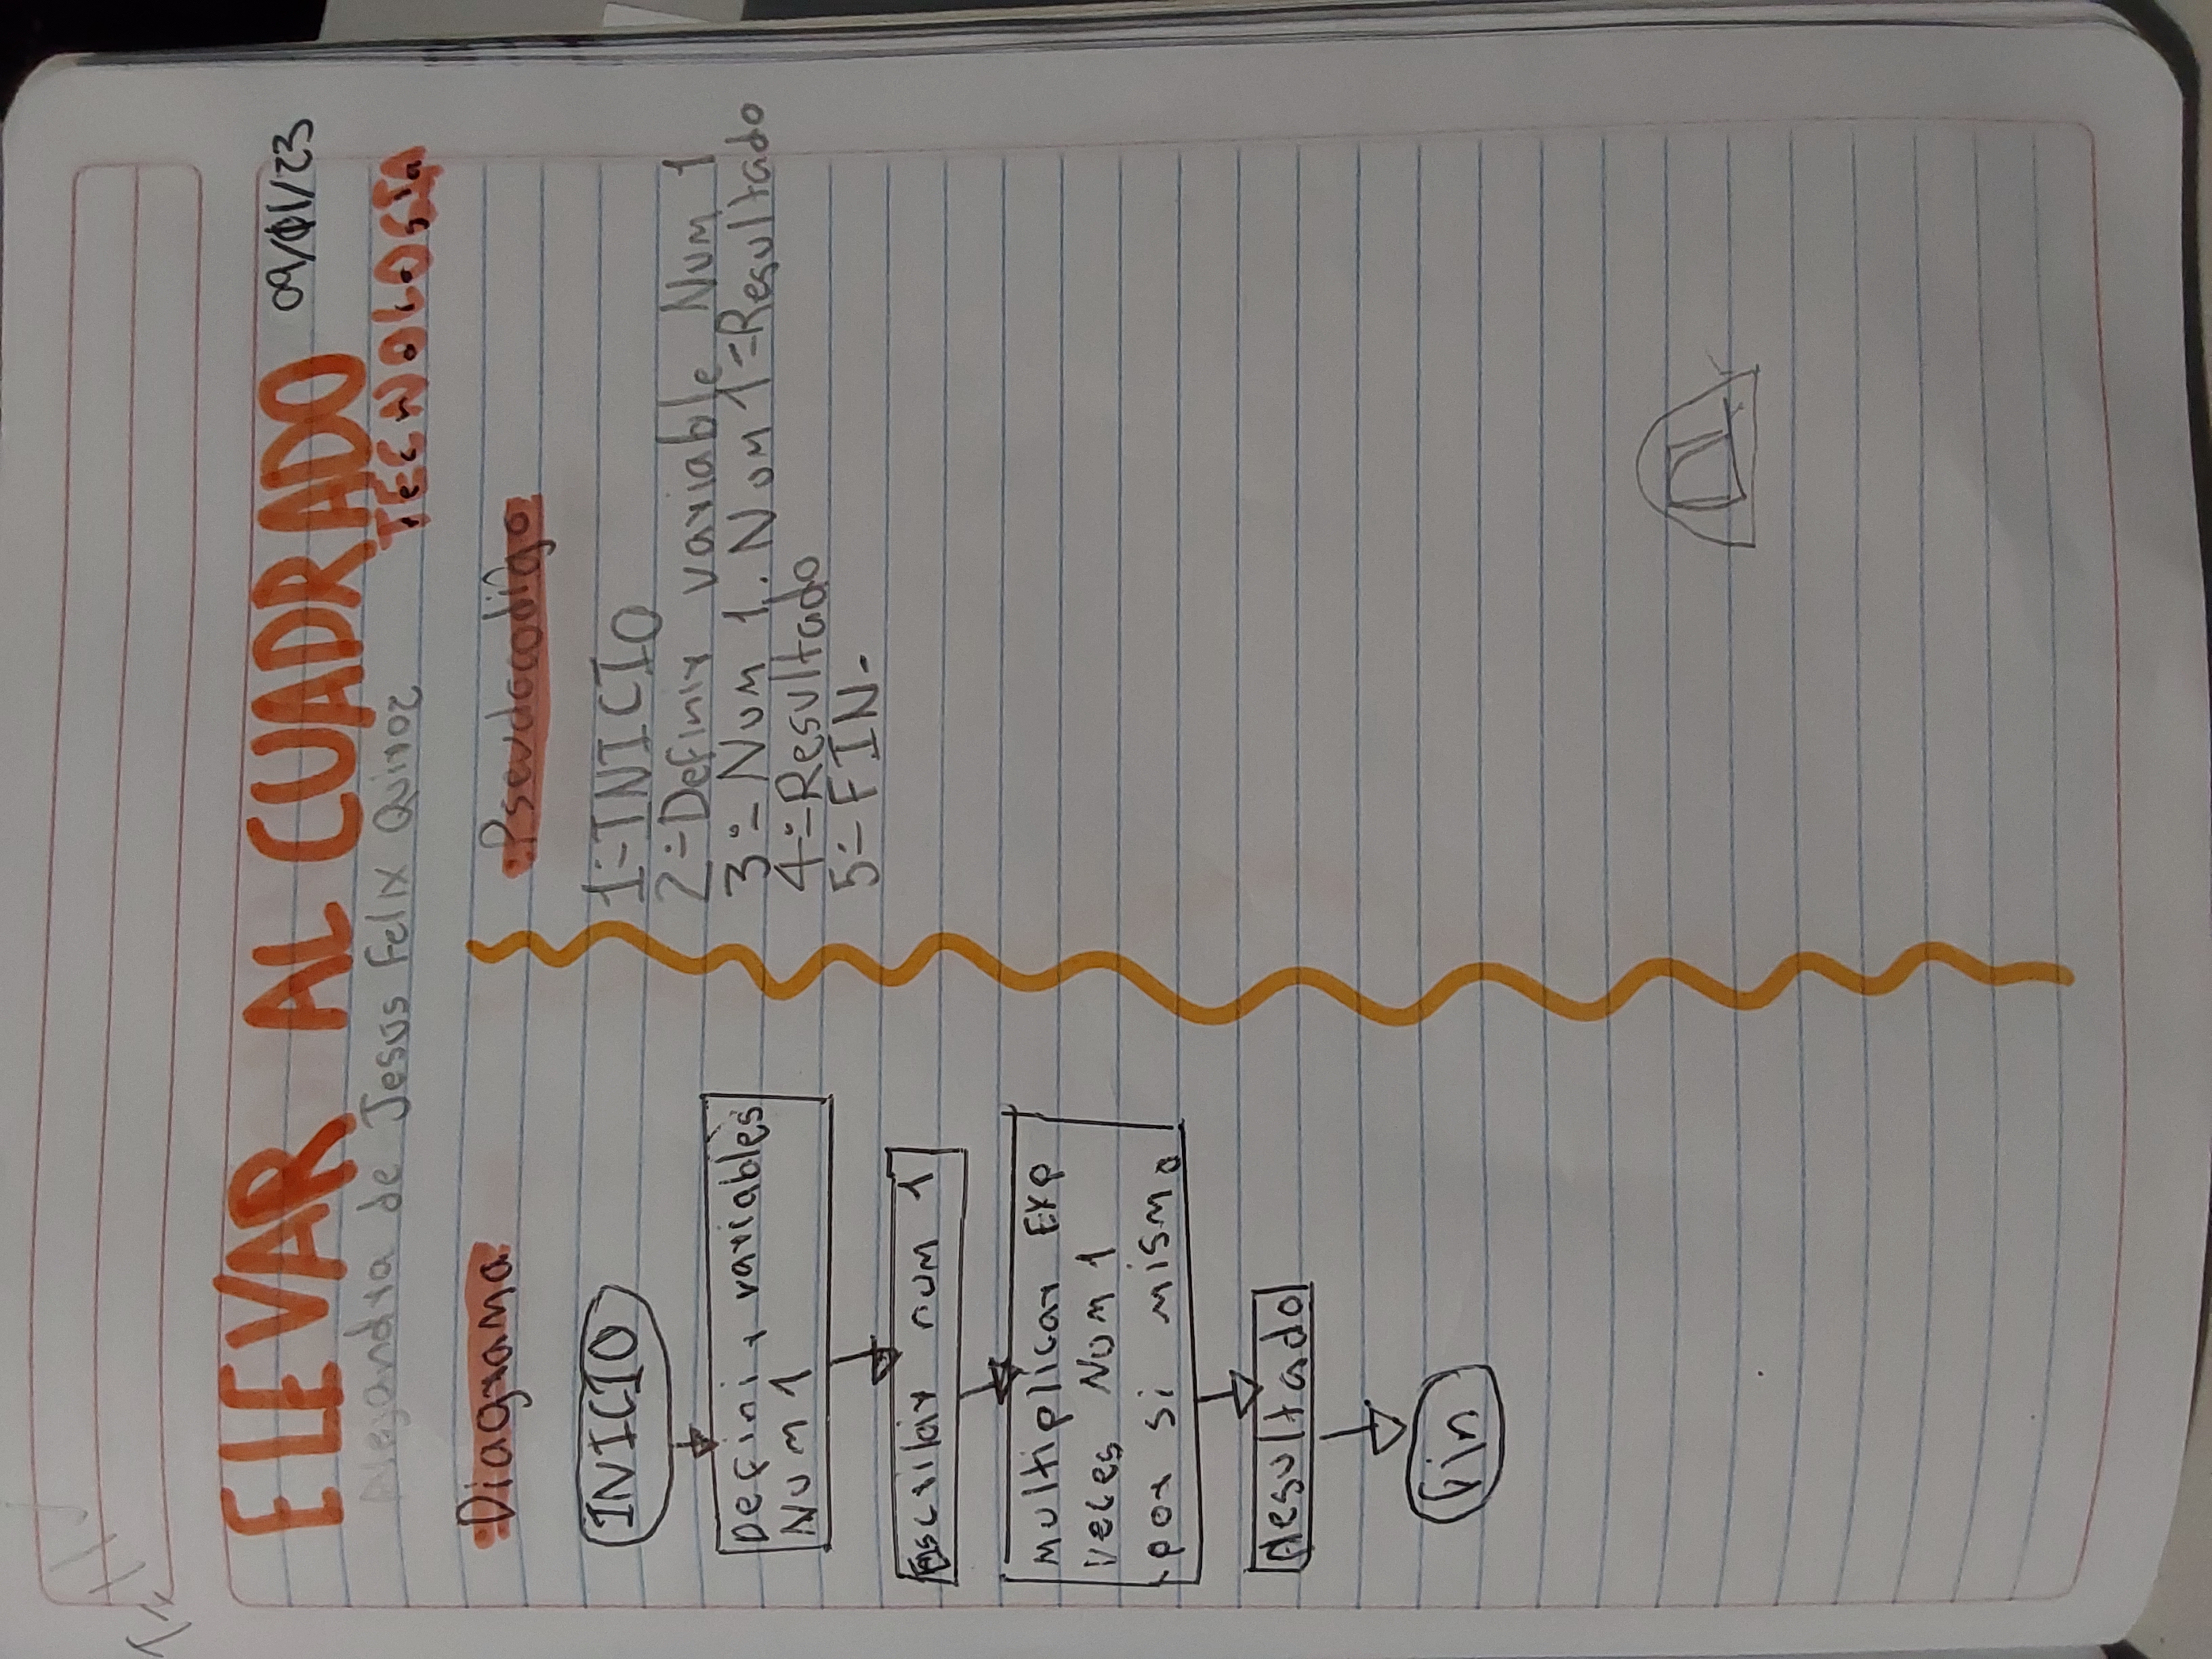 ELEVAR AL CUADRADO 09/01/23
Alejandra de Jesus Felix Quiroz
TECNOLOGIA
:Diagrama
INICIO
Definir variables
Num 1
Escribir num 1
Multiplicar Exp
veces Num 1
por si mismo
Resultado
fin
:Pseudocodigo
1:-INICIO
2:-Definir variable Num 1
3:-Num 1. Num 1=Resultado
4:-Resultado
5:-FIN-